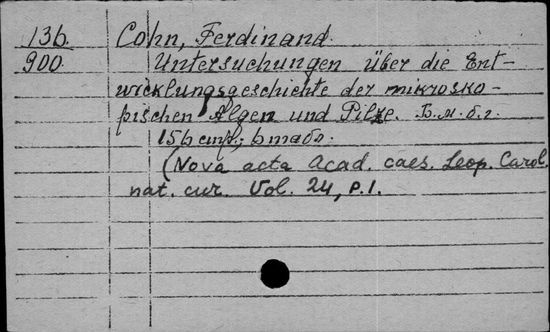 13b. Cohn, Ferdinand.
900. Untersuchungen über die Ent-
wicklungsgeschichte der mikrosko-
pischen Algen und Pilze. Б.м.б.г.
156 стр.; 6 табл.
(Nova acta Acad. caes. Leop. Carol.
nat. cur. Vol. 24, p.1.